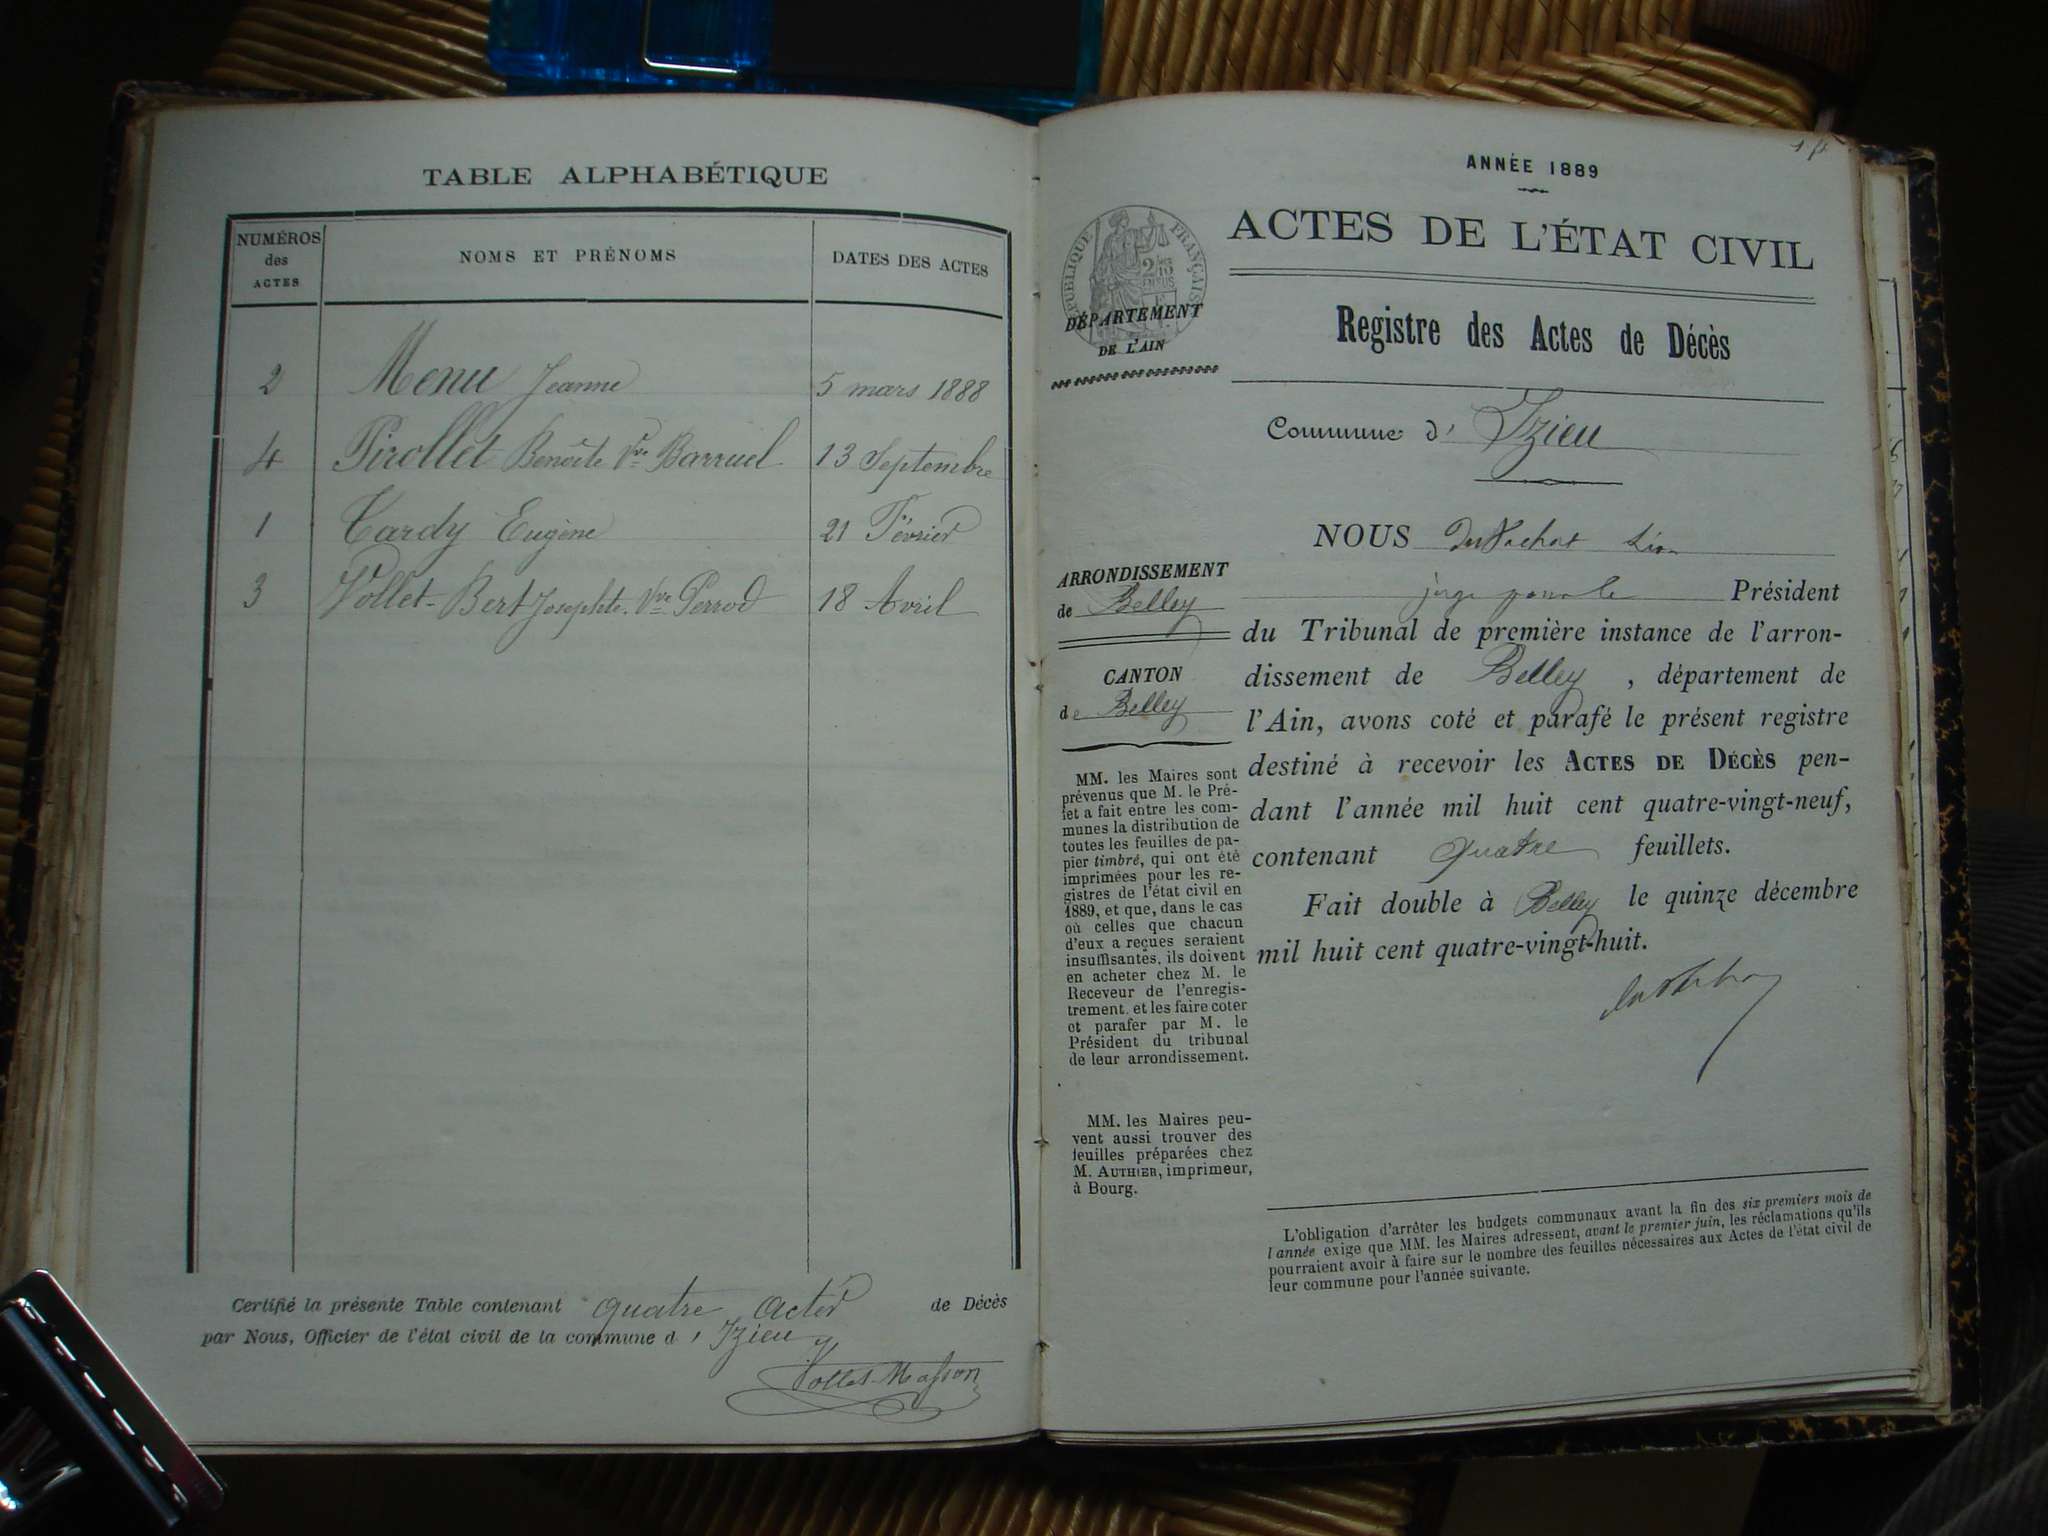 TABLE ALPHABÉTIQUE
NUMÉROS
des
ACTES
NOMS ET PRÉNOMS
DATES DES ACTES
2 Menu Jeanne 5 mars 1888
4 Pirollet Benoîte Vve Barruel 13 Septembre
1 Tardy Eugène 21 Février
3 Vollet-Bert Josephte Vve Perrod 18 Avril
Certifié la présente Table contenant quatre actes de Décès
par Nous, Officier de l'état civil de la commune d'Izieu
Vollet Masson
ANNÉE 1889
RÉPUBLIQUE FRANÇAISE
DÉPARTEMENT
DE L'AIN
ACTES DE L'ÉTAT CIVIL
Registre des Actes de Décès
Commune d'Izieu
ARRONDISSEMENT
de Belley
CANTON
de Belley
MM. les Maires sont
prévenus que M. le Pré-
fet a fait entre les com-
munes la distribution de
toutes les feuilles de pa-
pier timbré, qui ont été
imprimées pour les re-
gistres de l'état civil en
1889, et que, dans le cas
où celles que chacun
d'eux a reçues seraient
insuffisantes, ils doivent
en acheter chez M. le
Receveur de l'enregis-
trement et les faire coter
et parafer par M. le
Président du tribunal
de leur arrondissement.
MM. les Maires peu-
vent aussi trouver des
feuilles préparées chez
M. AUTHIER, imprimeur,
à Bourg.
NOUS
Président
du Tribunal de première instance de l'arron-
dissement de Belley, département de
l'Ain, avons coté et parafé le présent registre
destiné à recevoir les ACTES DE DÉCÈS pen-
dant l'année mil huit cent quatre-vingt-neuf,
contenant quatre feuillets.
Fait double à Belley le quinze décembre
mil huit cent quatre-vingt-huit.
L'obligation d'arrêter les budgets communaux avant la fin des six premiers mois de
l'année exige que MM. les Maires adressent, avant le premier juin, les réclamations qu'ils
pourraient avoir à faire sur le nombre des feuilles nécessaires aux Actes de l'état civil de
leur commune pour l'année suivante.